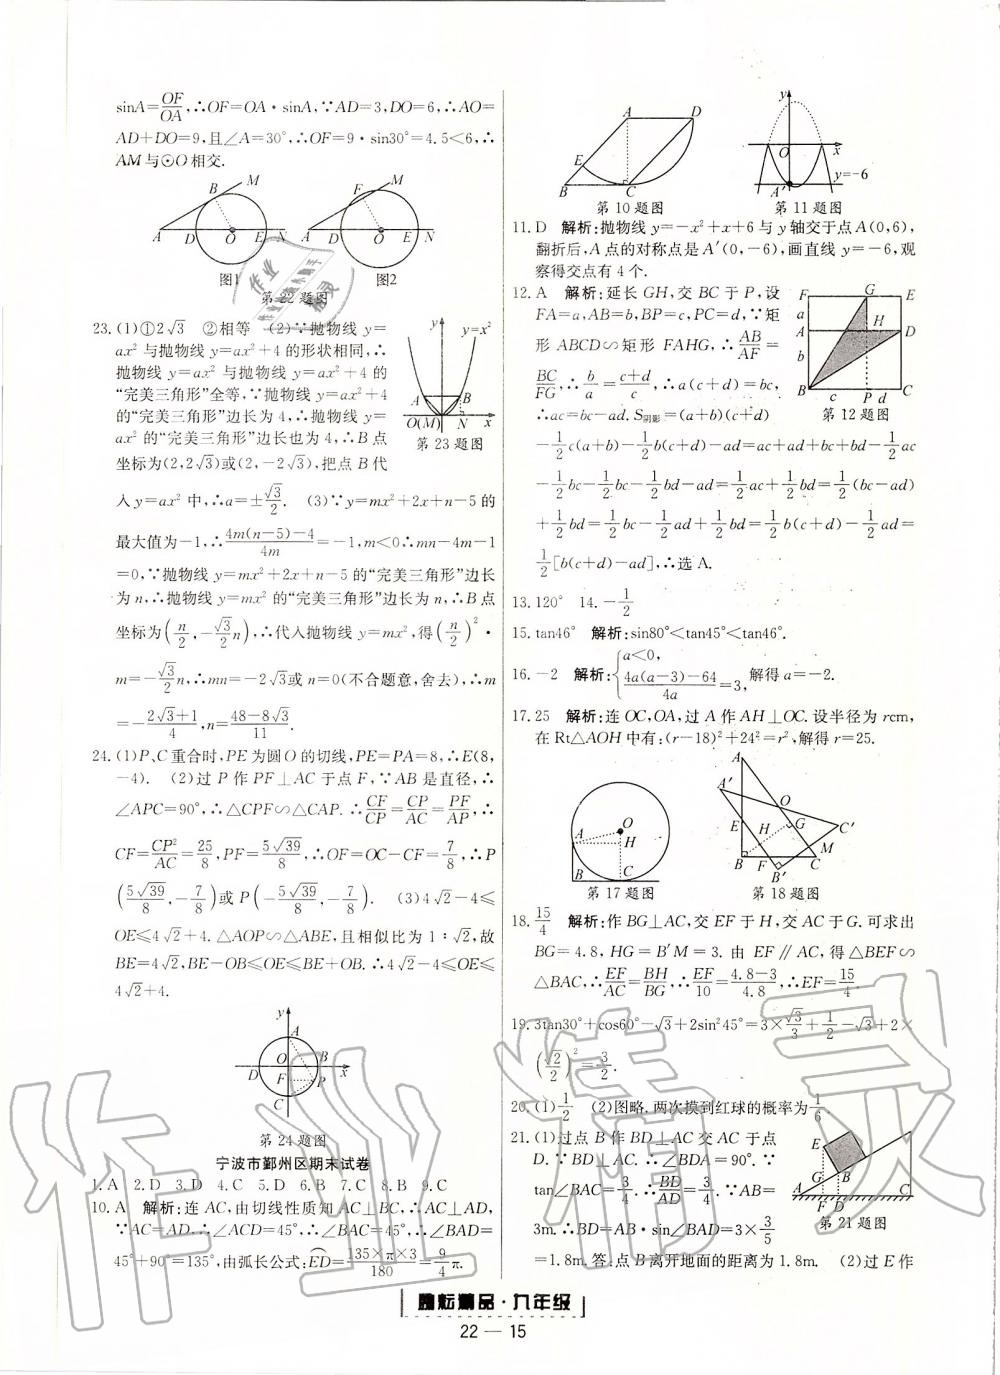 sinA=OF/OA,∴OF=OA·sinA,∵AD=3,DO=6,∴AO=
AD+DO=9,且∠A=30°,∴OF=9·sin30°=4.5<6,∴
AM与⊙O相交.
M
B
A D O E N
图1
M
F
A D O E N
图2
第22题图
23.(1)①2√3 ②相等 (2)∵抛物线y=
ax²与抛物线y=ax²+4的形状相同,∴
抛物线y=ax²与抛物线y=ax²+4的
“完美三角形”全等,∵抛物线y=ax²+4
的“完美三角形”边长为4,∴抛物线y=
ax²的“完美三角形”边长也为4,∴B点
坐标为(2,2√3)或(2,-2√3),把点B代
y
y=x²
A B
O(M) N x
第23题图
入y=ax²中,∴a=±√3/2. (3)∵y=mx²+2x+n-5的
最大值为-1,∴(4m(n-5)-4)/4m=-1,m<0∴mn-4m-1
=0,∵抛物线y=mx²+2x+n-5的“完美三角形”边长
为n,∴抛物线y=mx²的“完美三角形”边长为n,∴B点
坐标为(n/2,-√3/2 n),∴代入抛物线y=mx²,得(n/2)²·
m=-√3/2 n,∴mn=-2√3或n=0(不合题意,舍去),∴m
=-(2√3+1)/4,n=(48-8√3)/11.
24.(1)P、C重合时,PE为圆O的切线,PE=PA=8,∴E(8,
-4). (2)过P作PF⊥AC于点F,∵AB是直径,∴
∠APC=90°,∴△CPF∽△CAP.∴CF/CP=CP/AC=PF/AP,∴
CF=CP²/AC=25/8,PF=5√39/8,∴OF=OC-CF=7/8,∴P
(5√39/8,-7/8)或P(-5√39/8,-7/8). (3)4√2-4≤
OE≤4√2+4.△AOP∽△ABE,且相似比为1:√2,故
BE=4√2,BE-OB≤OE≤BE+OB.∴4√2-4≤OE≤
4√2+4.
y
A
D O B x
F P
C
第24题图
宁波市鄞州区期末试卷
1.A 2.D 3.D 4.C 5.D 6.B 7.C 8.B 9.C
10.A 解析:连AC,由切线性质知AC⊥BC,∴AC⊥AD,
∵AC=AD,∴∠ACD=45°,∴∠BAC=45°,∴∠BAD=
45°+90°=135°,由弧长公式:ED=(135×π×3)/180=9/4 π.
A D
E
B C
第10题图
y
O x
A′ y=-6
第11题图
11.D 解析:抛物线y=-x²+x+6与y轴交于点A(0,6),
翻折后,A点的对称点是A′(0,-6),画直线y=-6,观
察得交点有4个.
12.A 解析:延长GH,交BC于P,设
FA=a,AB=b,BP=c,PC=d,∵矩
形ABCD∽矩形FAHG,∴AB/AF=
BC/FG,∴b/a=(c+d)/c,∴a(c+d)=bc,
∴ac=bc-ad.S阴影=(a+b)(c+d)
F G E
a H
A D
b
B c P d C
第12题图
-1/2 c(a+b)-1/2 b(c+d)-ad=ac+ad+bc+bd-1/2 ac
-1/2 bc-1/2 bc-1/2 bd-ad=1/2 ac+1/2 bd=1/2(bc-ad)
+1/2 bd=1/2 bc-1/2 ad+1/2 bd=1/2 b(c+d)-1/2 ad=
1/2[b(c+d)-ad],∴选A.
13.120° 14.-1/2
15.tan46° 解析:sin80°<tan45°<tan46°.
16.-2 解析:{a<0, (4a(a-3)-64)/4a=3, 解得a=-2.
17.25 解析:连OC,OA,过A作AH⊥OC.设半径为rcm,
在Rt△AOH中有:(r-18)²+24²=r²,解得r=25.
O
A H
B C
第17题图
A
A′
O
E H G C′
M
B F C
B′
第18题图
18.15/4 解析:作BG⊥AC,交EF于H,交AC于G.可求出
BG=4.8,HG=B′M=3.由EF∥AC,得△BEF∽
△BAC,∴EF/AC=BH/BG,∴EF/10=(4.8-3)/4.8,∴EF=15/4.
19.3tan30°+cos60°-√3+2sin²45°=3×√3/3+1/2-√3+2×
(√2/2)²=3/2.
20.(1)1/2 (2)图略.两次摸到红球的概率为1/6.
21.(1)过点B作BD⊥AC交AC于点
D.∵BD⊥AC.∴∠BDA=90°.∵
tan∠BAC=3/4,∴BD/AD=3/4.∵AB=
3m.∴BD=AB·sin∠BAD=3×3/5
E
B
A F D C
第21题图
=1.8m.答:点B离开地面的距离为1.8m. (2)过E作
励耘精品·九年级
22—15
作业精灵